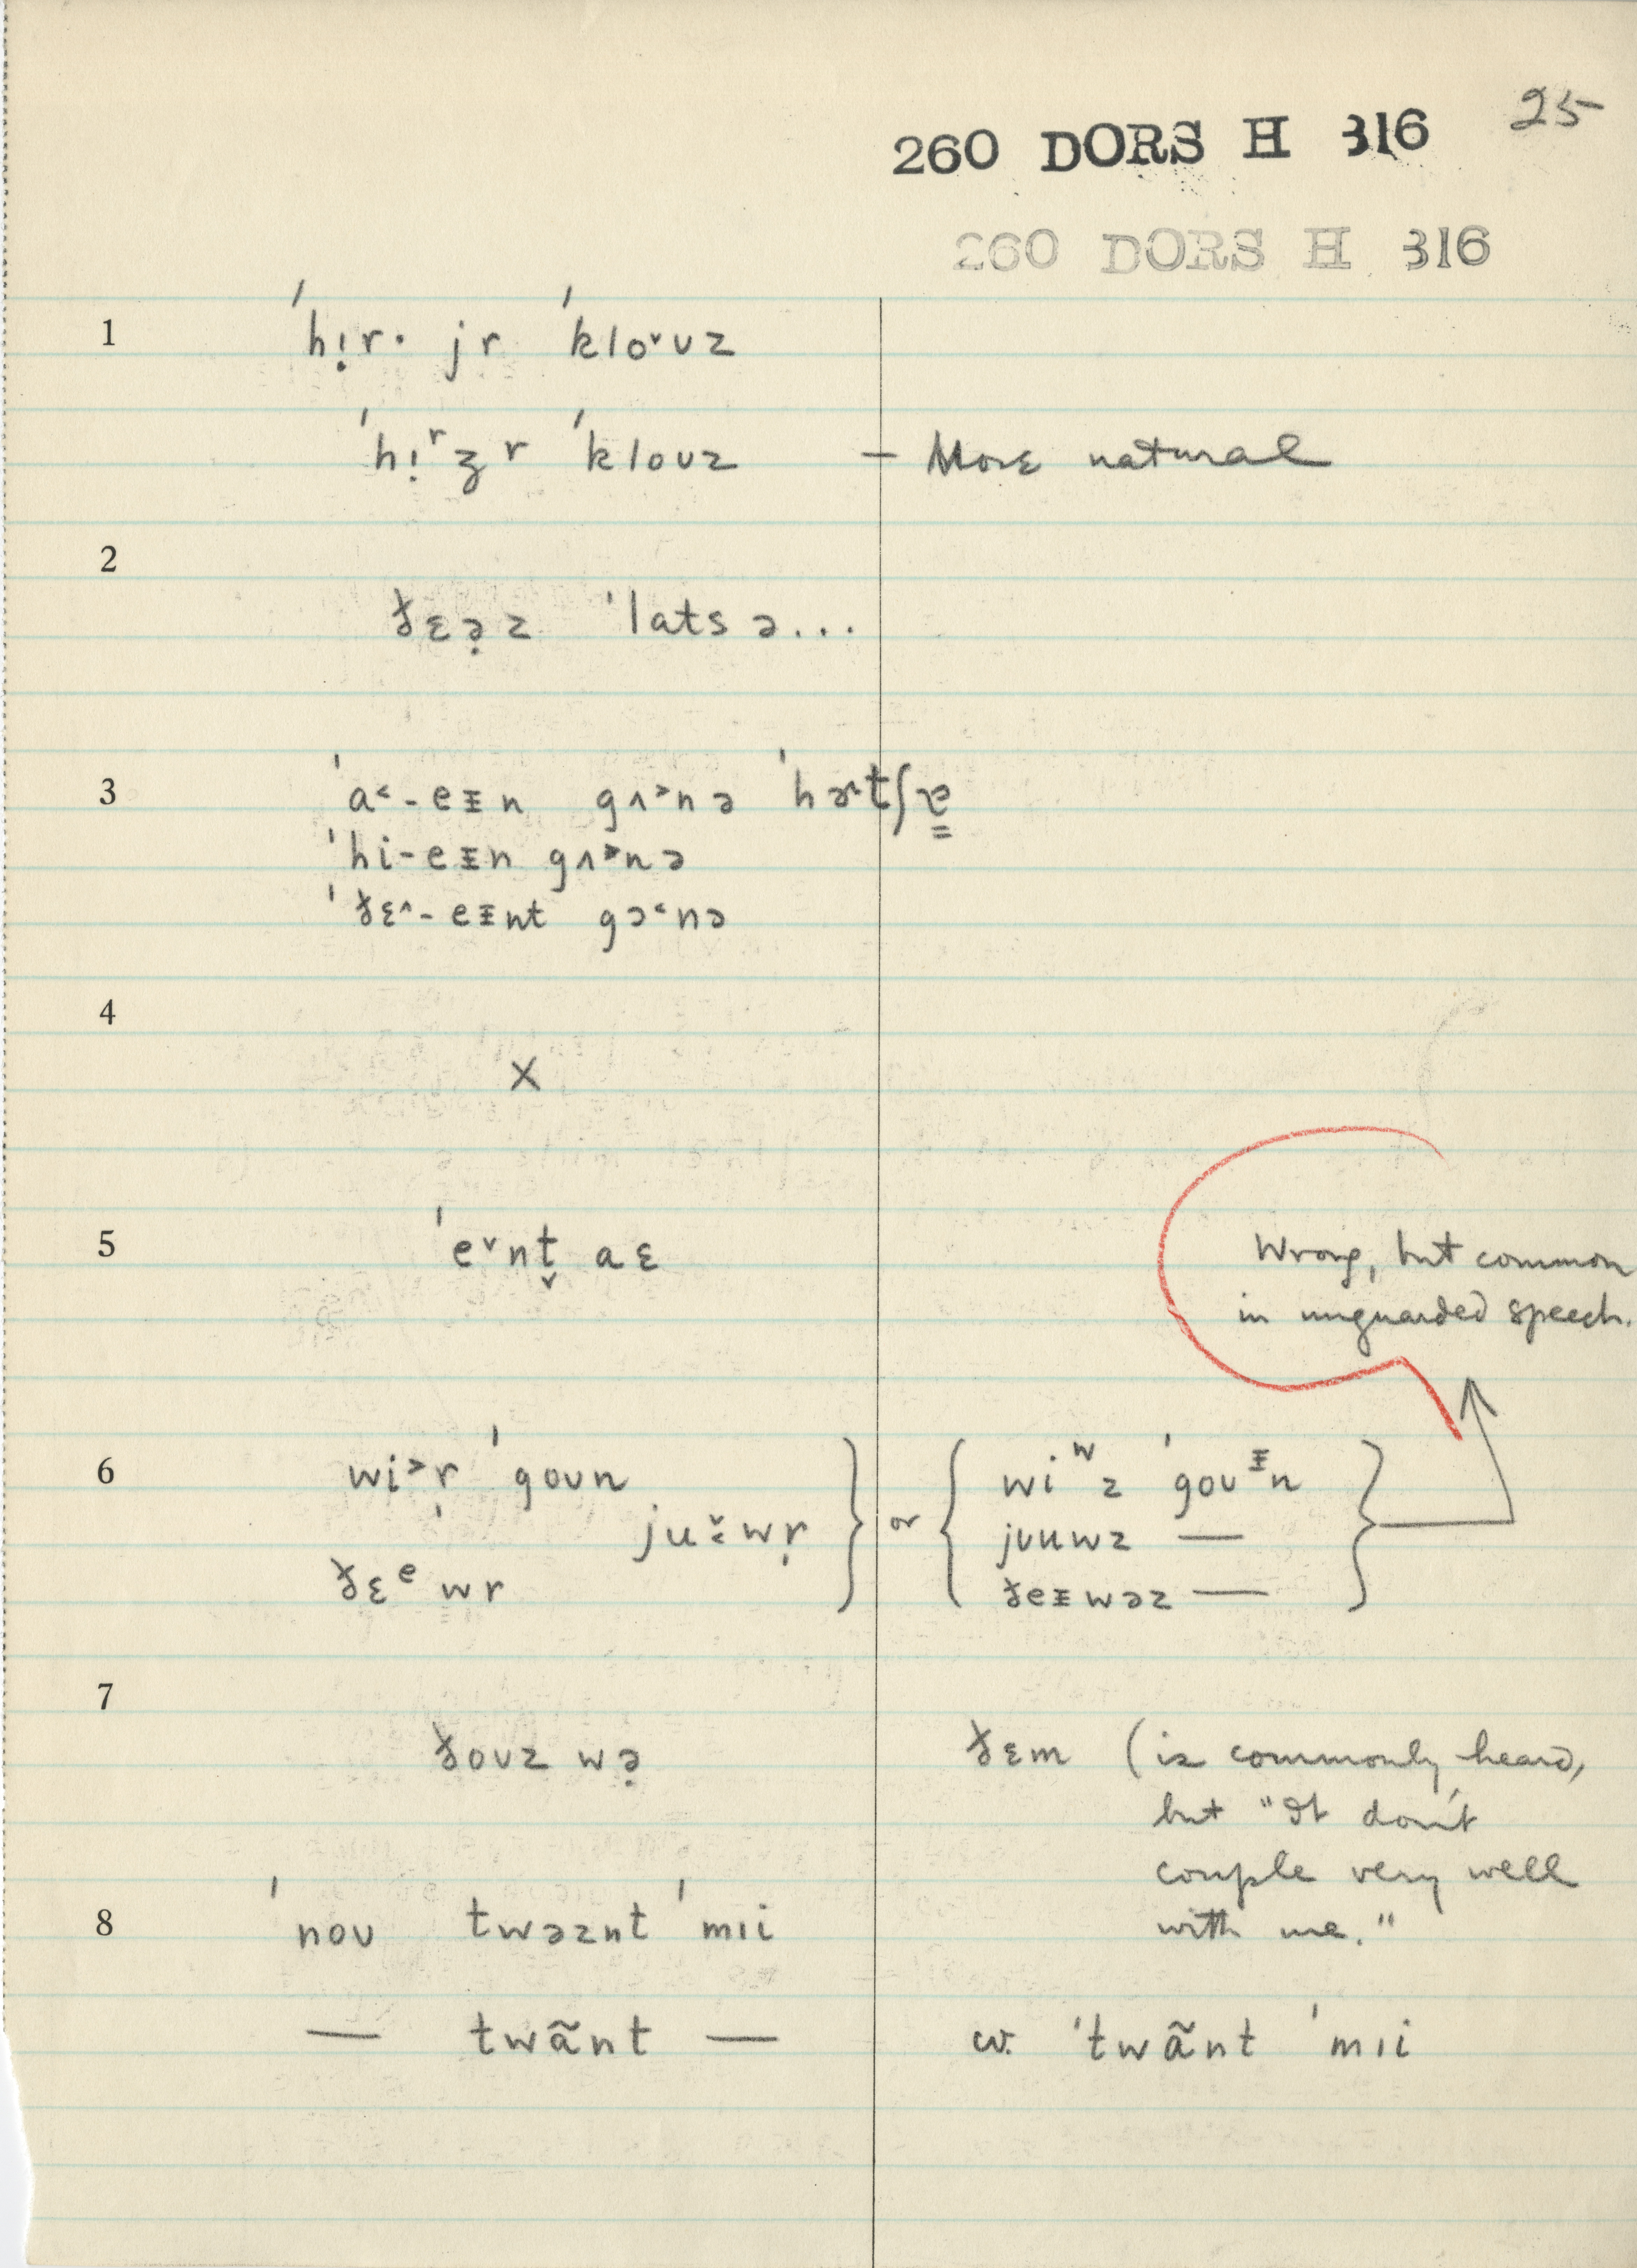 25
260 DORS H 316
260 DORS H 316
1 ˈhị̣r· jr ˈkloˇʊz
ˈhịʳʒr ˈkloʊz — More natural
2
ðɛə̣z ˈlats ə...
3 ˈa˂-eᵻn gʌ˃nə ˈhɚtʃɐ̳
ˈhi-eᵻn gʌ˃nə
ˈðɛ˄-eᵻnt gɔ˂nə
4
X
5 ˈeˇnt̬ aɛ
Wrong, but common
in unguarded speech.
6 wi˃r̩ ˈgoʊn } or { wiʷz ˈgoʊᵻn }
juˇ˂wṛ juuwz —
ðɛᵉwr ðeᵻwəz —
7
ðoʊz wə̣ ðɛm (is commonly heard,
but "It don't
couple very well
8 ˈnoʊ twəznt ˈmɪi with me."
— twãnt — cv. ˈtwãnt ˈmɪi